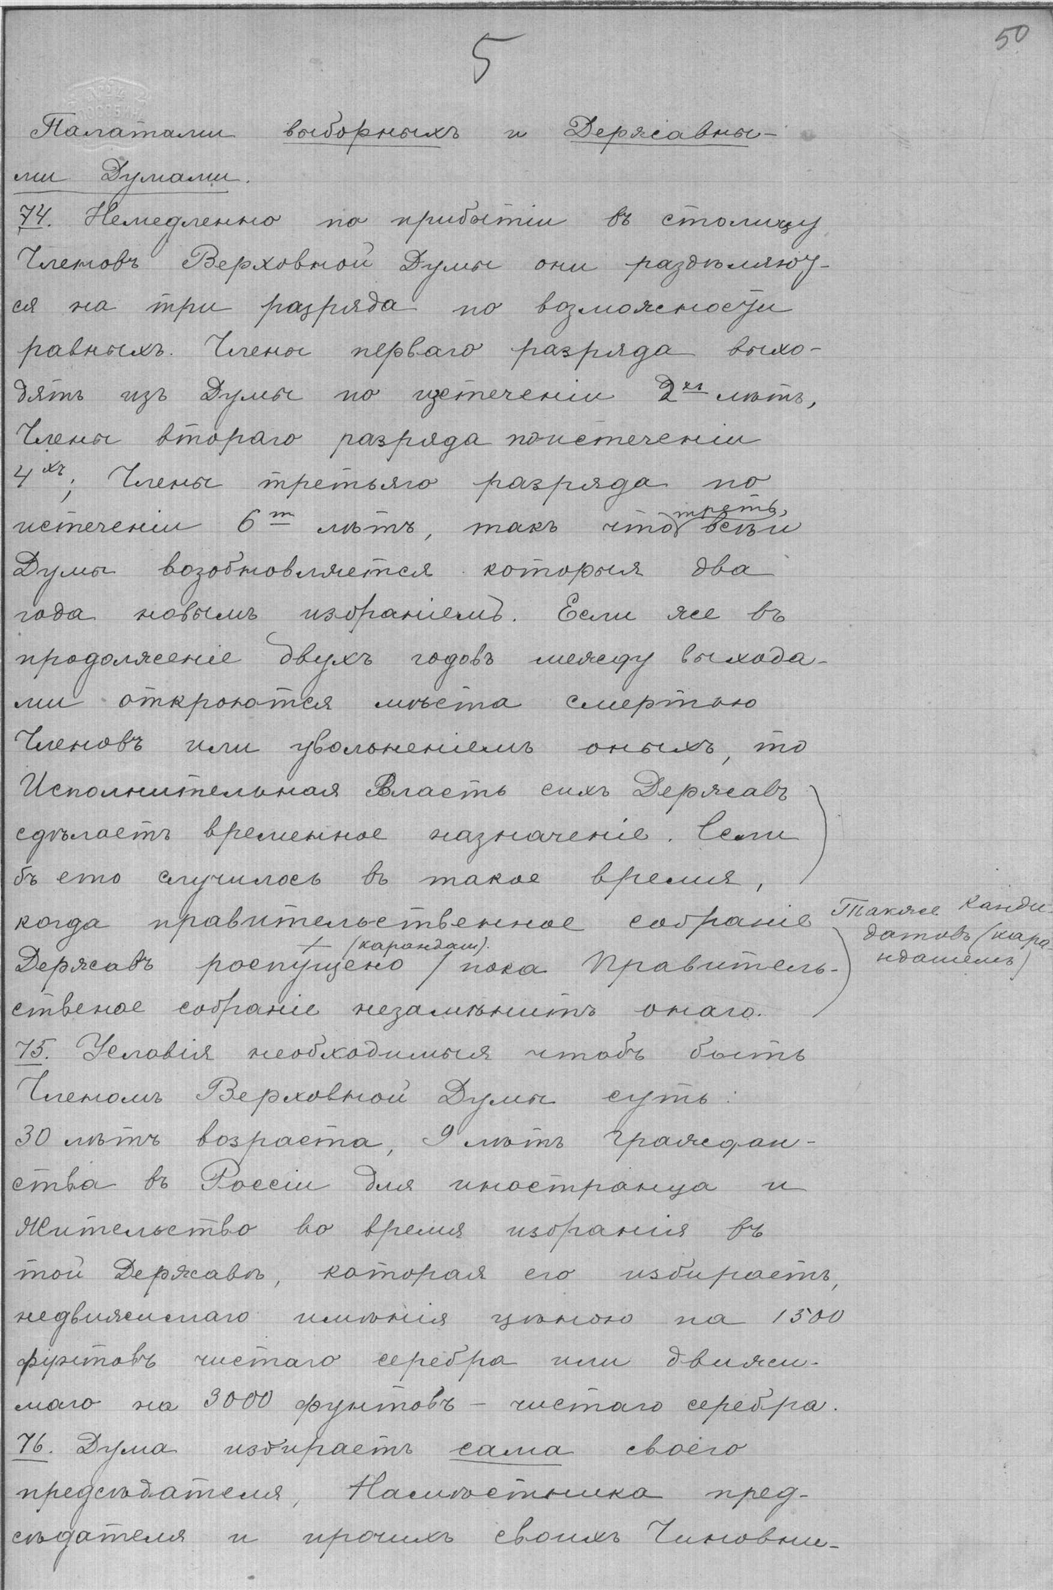 5
50
Палатами выборныхъ и Державны-
ми Думами.
74. Немедленно по прибытіи въ столицу
Членовъ Верховной Думы они раздѣляют-
ся на три разряда по возможности
равныхъ. Члены перваго разряда выхо-
дятъ изъ Думы по истеченіи 2хъ лѣтъ,
Члены втораго разряда по истеченіи
4хъ; Члены третьяго разряда по
истеченіи 6ти лѣтъ, такъ что треть всѣй
Думы возобновляется которыя два
года новымъ избраніемъ. Если же въ
продолженіе двухъ годовъ между выхода-
ми откроются мѣста смертью
Членовъ или увольненіемъ оныхъ, то
Исполнительная Власть сихъ Державъ
сдѣлаетъ временное назначеніе. Если
бъ ето случилось въ такое время,
когда правительственное собраніе
Также канди-
датовъ (кара-
ндашемъ)
(карандаш).
Державъ роспущено / пока Правитель-
ственое собраніе незамѣнитъ онаго.
75. Условія необходимыя чтобъ быть
Членомъ Верховной Думы суть:
30 лѣтъ возраста, 9 лѣтъ граждан-
ства въ Россіи для иностранца и
жительство во время избранія въ
той Державѣ, которая его избираетъ,
недвижимаго имѣнія цѣною на 1500
фунтовъ чистаго серебра или движи-
маго на 3000 фунтовъ - чистаго серебра.
76. Дума избираетъ сама своего
предсѣдателя, Намѣстника пред-
сѣдателя и прочихъ своихъ Чиновни-